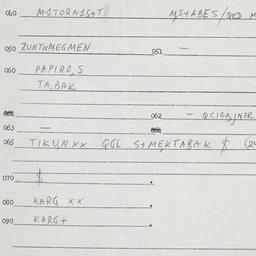 040 M1TORN1S+T
050 ZUNTIXMEGMEN 051 –
060 PAPIRO,S
TA,BAK
061 062 – QCIGA,JN3R
063 – 064
065 TIKUNXX QGL S+MEKTABAK $
070 $
080 KARG XX
090 KARG+